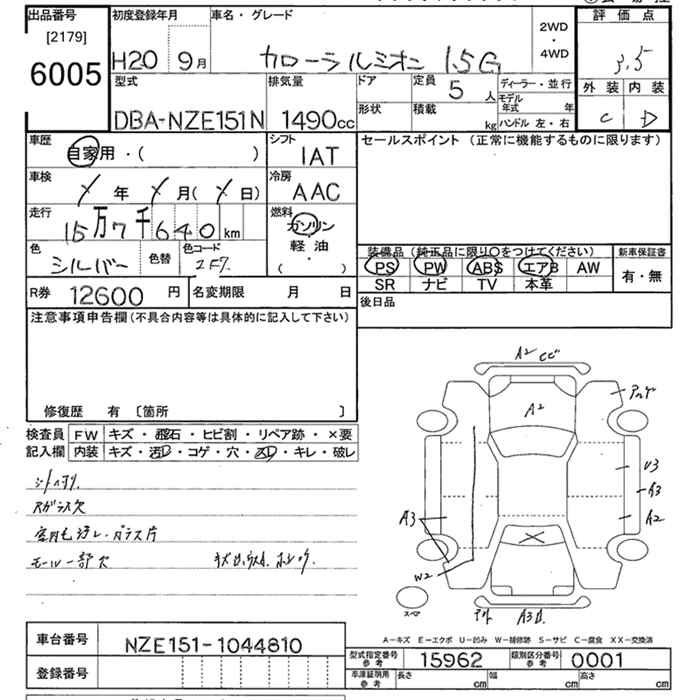 出品番号 初度登録年月 車名・グレード 2WD ・ 4WD 評価点
[2179]
6005 H20 9月 カローラルミオン 1.5G 3.5
型式 排気量 ドア 定員 5人 ディーラー・並行 外装 内装
DBA-NZE151N 1490cc 形状 積載 kg モデル年式 年 C D
ハンドル 左・右
車歴 シフト セールスポイント (正常に機能するものに限ります)
自家用・( ) IAT
車検 冷房
/年 /月(/日) AAC
走行 燃料
15万7千640km ガソリン
色 色替 色コード 軽油
シルバー 2F7 ( )
装備品 (純正品に限り○をつけてください) 新車保証書
PS PW ABS エアB AW 有・無
SR ナビ TV 本革
R券 12600円 名変期限 月 日 後日品
注意事項申告欄(不具合内容等は具体的に記入して下さい)
修復歴 有 〔箇所 〕
検査員 FW キズ・飛石・ヒビ割・リペア跡・×要
記入欄 内装 キズ・汚レ・コゲ・穴・スレ・キレ・破レ
室内毛汚レ・ガラス片
モール一部欠
A2
A2
U3
A3
A2
A3
W2
スペア
A3
A－キズ E－エクボ U－凹み W－補修跡 S－サビ C－腐食 XX－交換済
車台番号 NZE151-1044810
登録番号
型式指定番号 参考 15962 類別区分番号 参考 0001
車庫証明用 参考 長さ cm 幅 cm 高さ cm